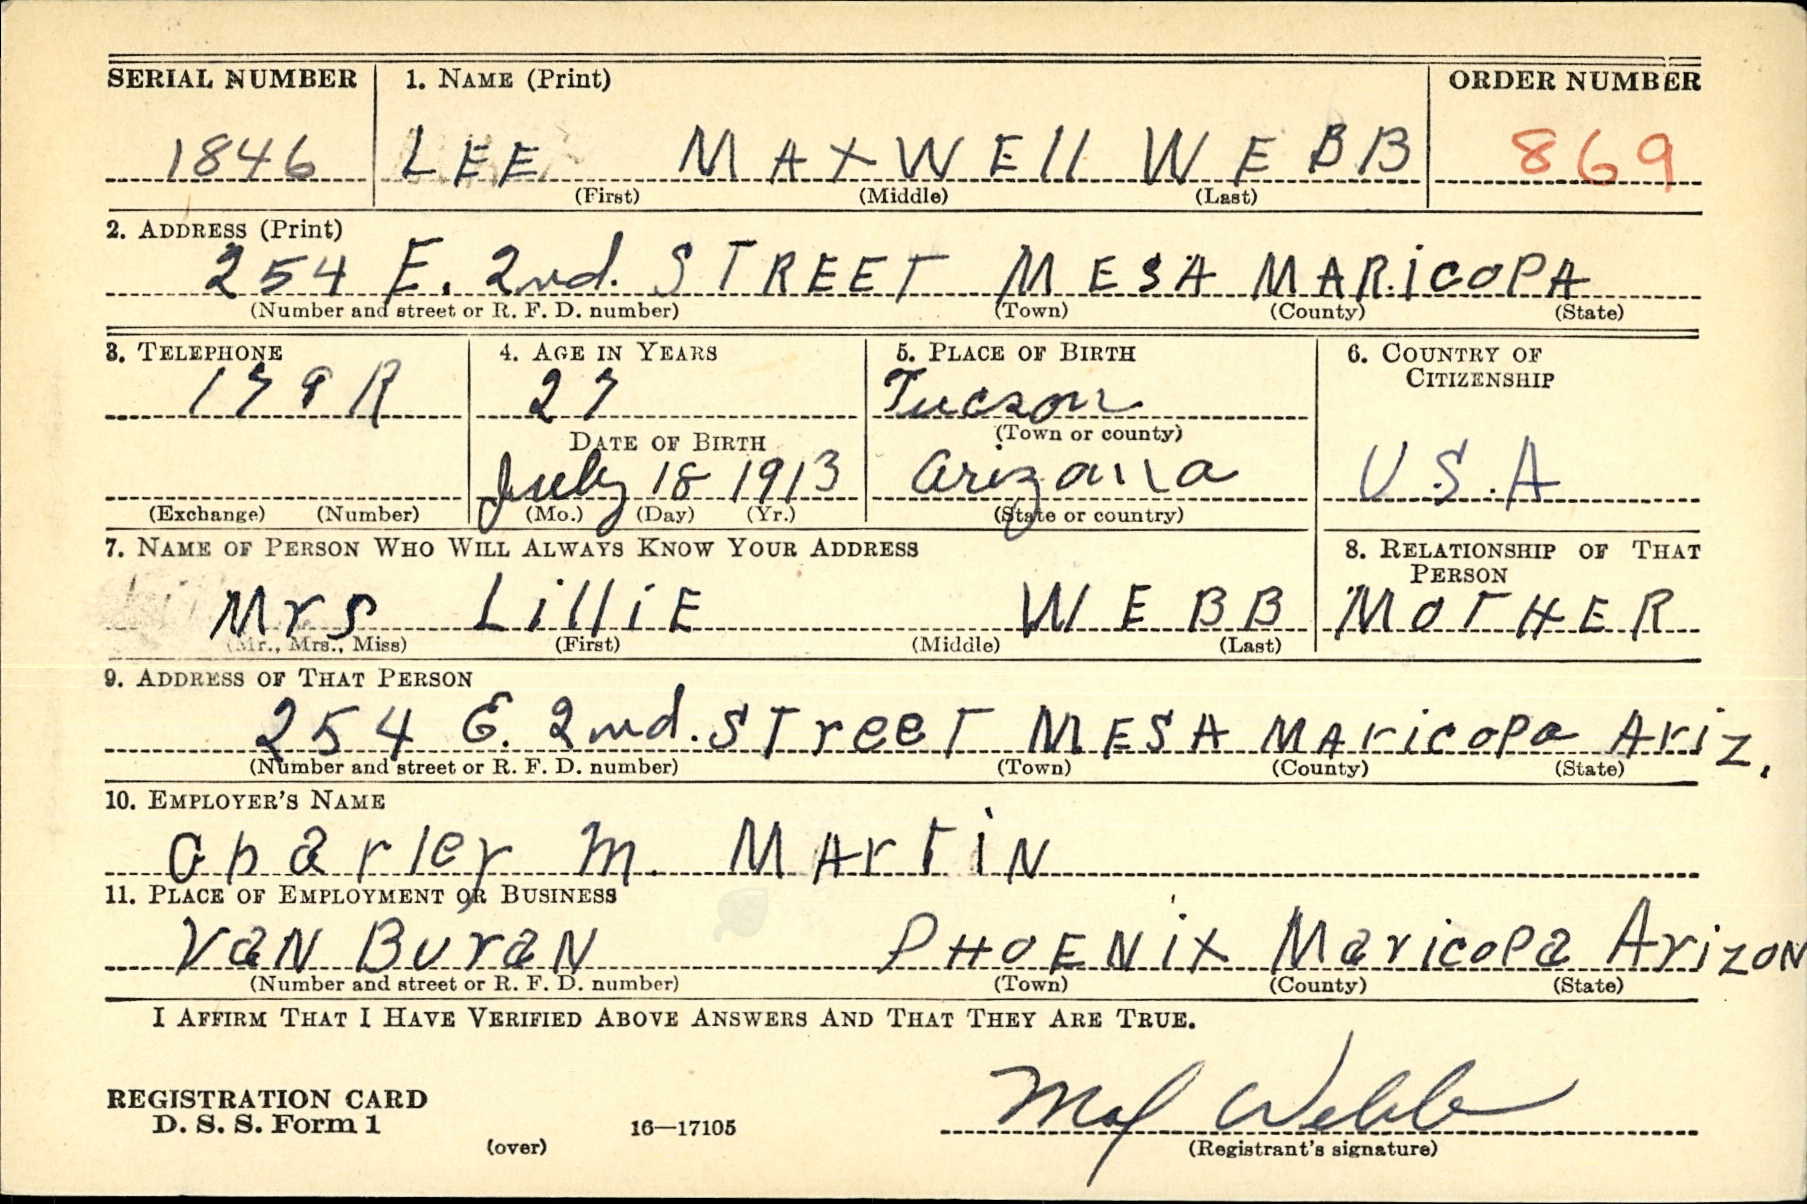 SERIAL NUMBER 1. NAME (Print) ORDER NUMBER
1846 LEE MAXWEll WEBB 869
(First) (Middle) (Last)
2. ADDRESS (Print)
254 E. 2nd. STREET MESA MARiCOPA
(Number and street or R. F. D. number) (Town) (County) (State)
3. TELEPHONE 4. AGE IN YEARS 5. PLACE OF BIRTH 6. COUNTRY OF CITIZENSHIP
179 R 27 Tucson
DATE OF BIRTH (Town or county)
July 18 1913 Arizona U.S.A
(Exchange) (Number) (Mo.) (Day) (Yr.) (State or country)
7. NAME OF PERSON WHO WILL ALWAYS KNOW YOUR ADDRESS 8. RELATIONSHIP OF THAT PERSON
Mrs LilliE WEBB MOTHER
(Mr., Mrs., Miss) (First) (Middle) (Last)
9. ADDRESS OF THAT PERSON
254 E. 2nd. STreeT MESA MAricopa Ariz.
(Number and street or R. F. D. number) (Town) (County) (State)
10. EMPLOYER'S NAME
Charley M. MArTiN
11. PLACE OF EMPLOYMENT OR BUSINESS
VaN BuraN PHOENiX Maricopa ArizoN
(Number and street or R. F. D. number) (Town) (County) (State)
I AFFIRM THAT I HAVE VERIFIED ABOVE ANSWERS AND THAT THEY ARE TRUE.
Max Webb
REGISTRATION CARD
D. S. S. Form 1
(over) 16—17105 (Registrant's signature)